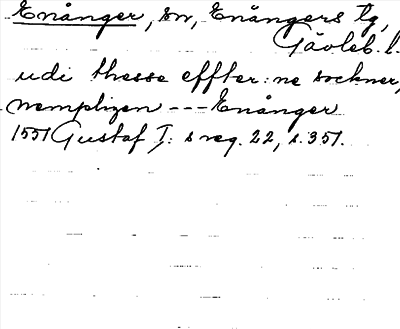 Enånger, sn, Enångers tg,
Gävleb. l.
udi thesse effter:ne sockner,
nempligen --- Enånger
1551 Gustaf I:s reg. 22, s. 351.